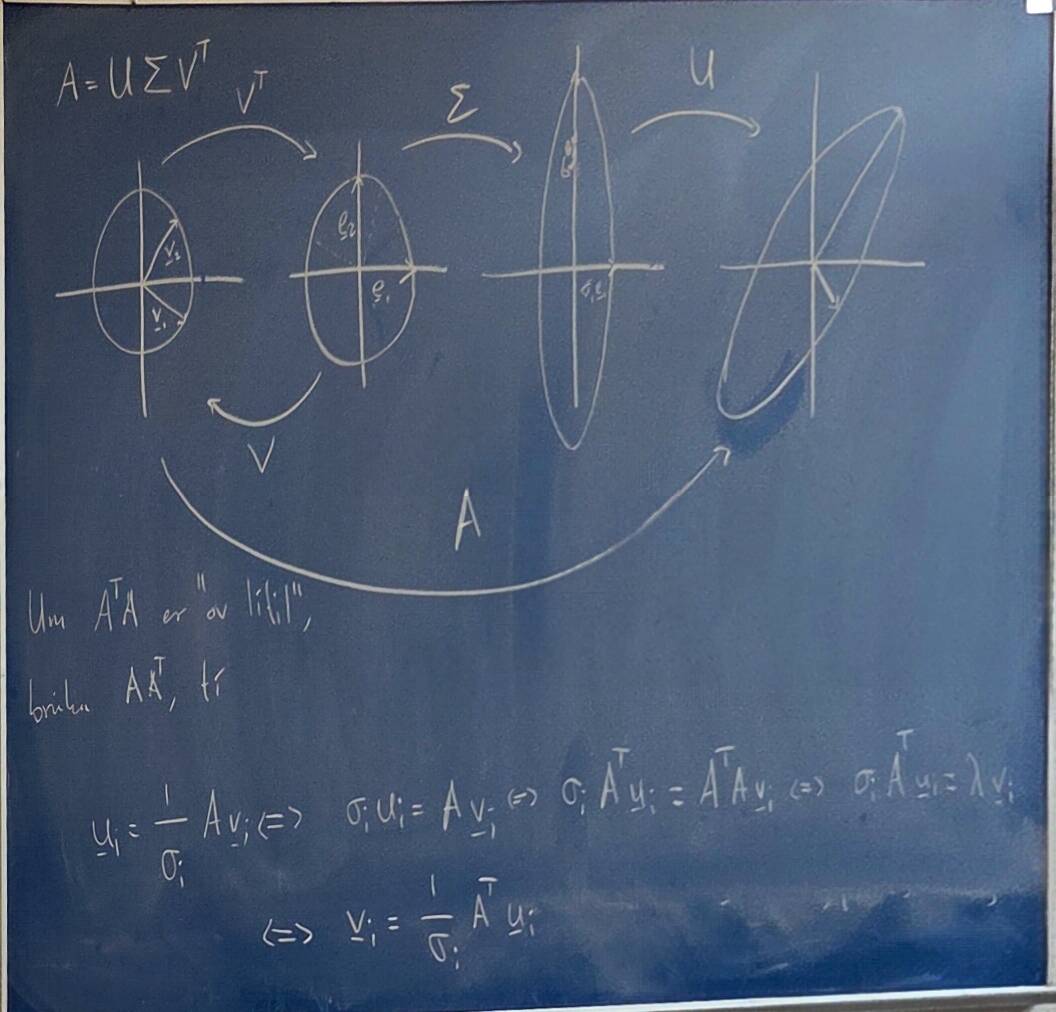 A = U Σ Vᵀ
Vᵀ
Σ
U
v₂
v₁
e₂
e₁
σ₁e₁
V
A
Um AᵀA er "ov lítil",
brúka AAᵀ, tí
uᵢ = 1/σᵢ A vᵢ <=> σᵢ uᵢ = A vᵢ <=> σᵢ Aᵀ uᵢ = AᵀA vᵢ <=> σᵢ Aᵀ uᵢ = λ vᵢ
<=> vᵢ = 1/σᵢ Aᵀ uᵢ